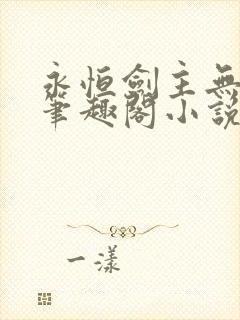 永恒劍主無
筆趣閣小說
一漾